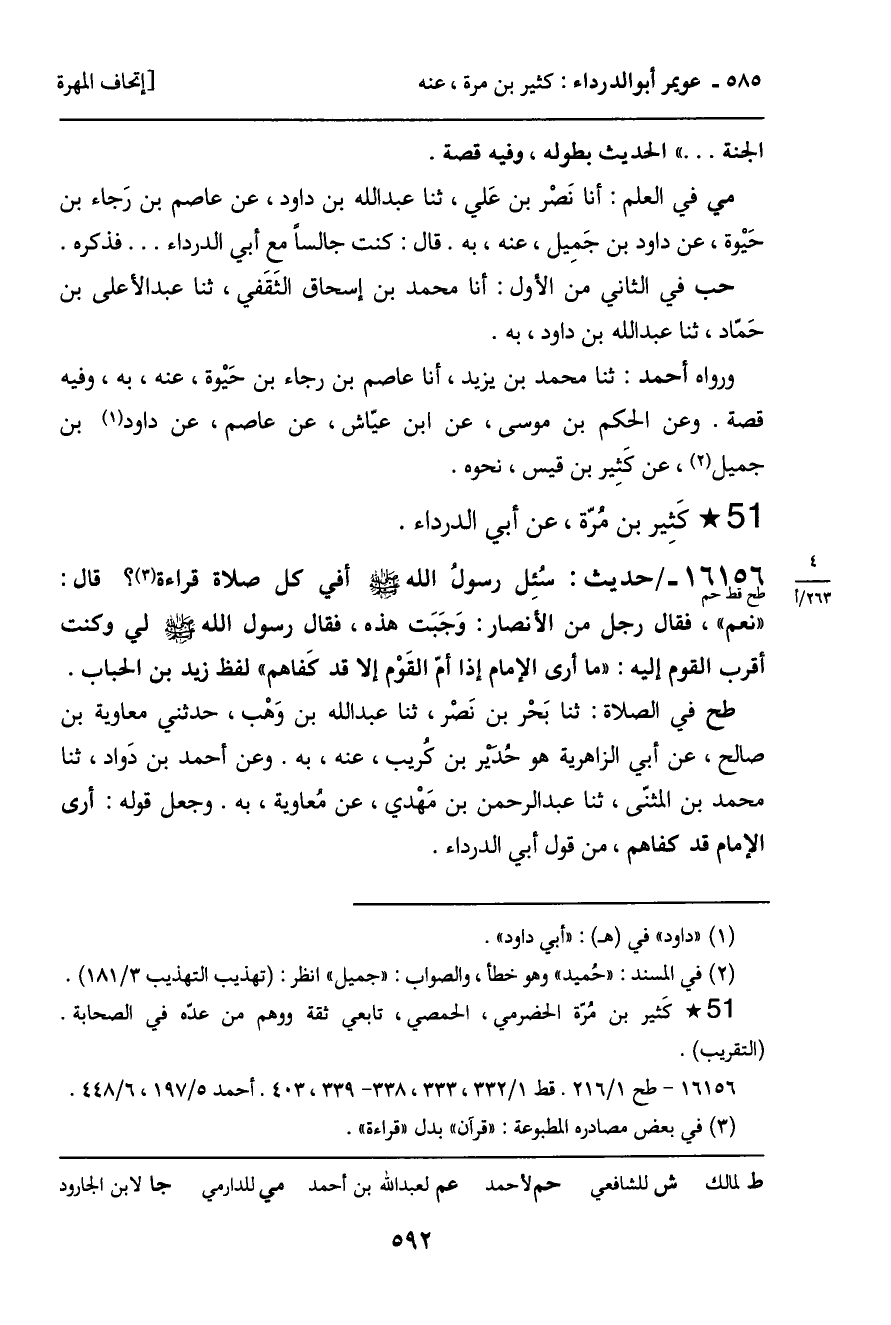 ٥٨٥ ـ عويمر أبوالدرداء : كثير بن مرة ، عنه [إتحاف المهرة
الجنة ...» الحديث بطوله ، وفيه قصة .
مي في العلم : أنا نَصْر بن عَلي ، ثنا عبدالله بن داود ، عن عاصم بن رَجاء بن
حَيْوة ، عن داود بن جَمِيل ، عنه ، به . قال : كنت جالساً مع أبي الدرداء ... فذكره .
حب في الثاني من الأول : أنا محمد بن إسحاق الثَقَفي ، ثنا عبدالأعلى بن
حَمّاد ، ثنا عبدالله بن داود ، به .
ورواه أحمد : ثنا محمد بن يزيد ، أنا عاصم بن رجاء بن حَيْوة ، عنه ، به ، وفيه
قصة . وعن الحكم بن موسى ، عن ابن عيّاش ، عن عاصم ، عن داود(١) بن
جميل(٢) ، عن كَثِير بن قيس ، نحوه .
51 ★ كَثِير بن مُرّة ، عن أبي الدرداء .
١٦١٥٦ ـ/حديث : سُئِل رسولُ الله ﷺ أفي كل صلاة قراءة(٣)؟ قال :
طح قط حم
٤
٢٦٣/أ
«نعم» ، فقال رجل من الأنصار : وَجَبَت هذه ، فقال رسول الله ﷺ لي وكنت
أقرب القوم إليه : «ما أرى الإمام إذا أمّ القَوْم إلا قد كَفاهم» لفظ زيد بن الحباب .
طح في الصلاة : ثنا بَحْر بن نَصْر ، ثنا عبدالله بن وَهْب ، حدثني معاوية بن
صالح ، عن أبي الزاهرية هو حُدَيْر بن كُريب ، عنه ، به . وعن أحمد بن دَواد ، ثنا
محمد بن المثنّى ، ثنا عبدالرحمن بن مَهْدي ، عن مُعاوية ، به . وجعل قوله : أرى
الإمام قد كفاهم ، من قول أبي الدرداء .
(١) «داود» في (هـ) : «أبي داود» .
(٢) في المسند : «حُميد» وهو خطأ ، والصواب : «جميل» انظر : (تهذيب التهذيب ١٨١/٣) .
51 ★ كَثير بن مُرّة الحضرمي ، الحمصي ، تابعي ثقة ووهم من عدّه في الصحابة .
(التقريب) .
١٦١٥٦ – طح ٢١٦/١ . قط ٣٣٢/١ ، ٣٣٣ ، ٣٣٨– ٣٣٩ ، ٤٠٣ . أحمد ١٩٧/٥ ، ٤٤٨/٦ .
(٣) في بعض مصادره المطبوعة : «قرآن» بدل «قراءة» .
ط لمالك ش للشافعي حم لأحمد عم لعبدالله بن أحمد مي للدارمي جا لابن الجارود
٥٩٢